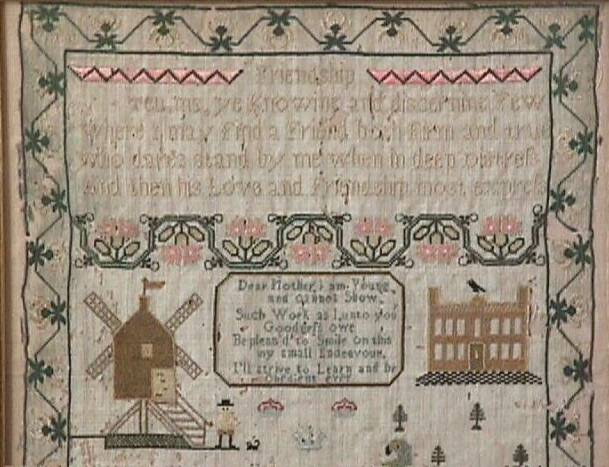 Friendship
Tell me, ye Knowing and discerning Few
Where I may Find a Friend both Firm and true
Who dares stand by me when in deep distreſs
And then his Love and Friendship most expreſs
Dear Mother, I am Young
and cannot Show,
Such Work as I unto you
Goodneſs owe
Be pleas'd to Smile on this
my small Endeavour,
I'll strive to Learn and be
Obedient ever